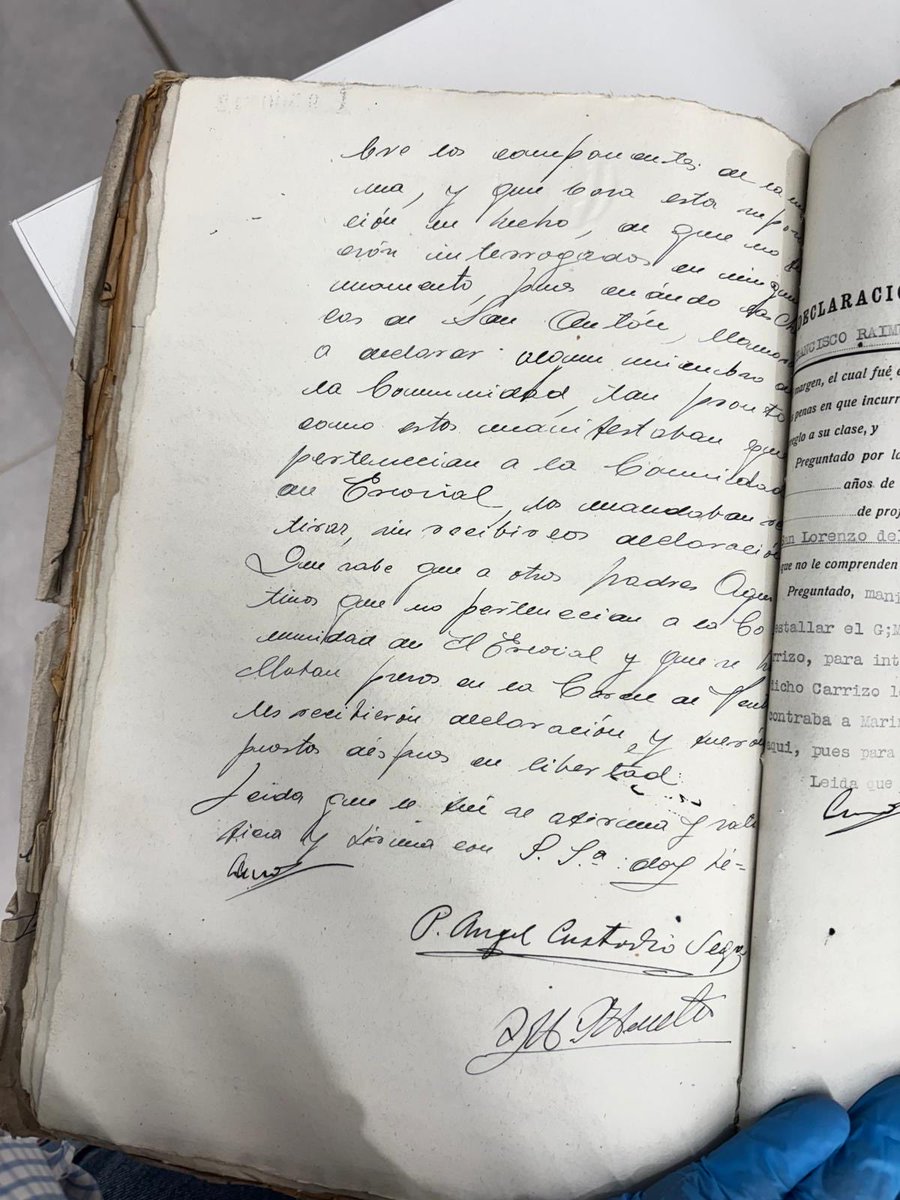 bre los componentes de la mis
ma, y que basa esta suposi
ción en hecho, de que no fu
erón interrogados en ningun
momento, pues cuándo
cos de San Antón, llamaron
a declarar algun miembro de
la Comunidad, tan pronto
como estos manifestaban que
pertenecian a la Comunidad
de Escorial, los mandaban re
tirar, sin recibirlos declaración
Que sabe que a otros padres Agus
tinos que no pertenecian a la Co
munidad de El Escorial y que se h
allaban presos en la Carcel de Vent
les recibierón declaración y fuerón
puestos déspues en libertad.
Leida que le fué se afirma y rati
fica y firma con S. Sª doy fé-
P. Angel Custodio Segu
DECLARACIÓ
FRANCISCO RAIMU
margen, el cual fué e
s penas en que incurr
reglo a su clase, y
Preguntado por la
años de
de prof
San Lorenzo del
que no le comprenden
Preguntado, mani
estallar el G;M
rrizo, para int
dicho Carrizo le
contraba a Marin
aqui, pues para
Leida que